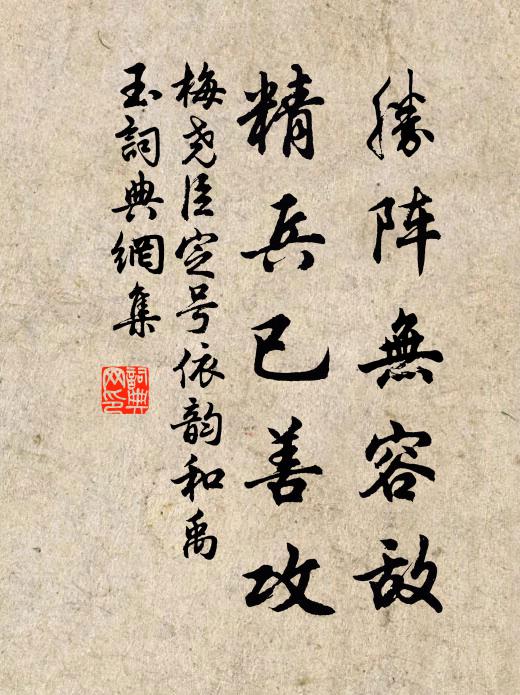 勝阵無容敌
精兵已善攻
梅尧臣定号依韵和禹
玉詞典網集
詞典
网印